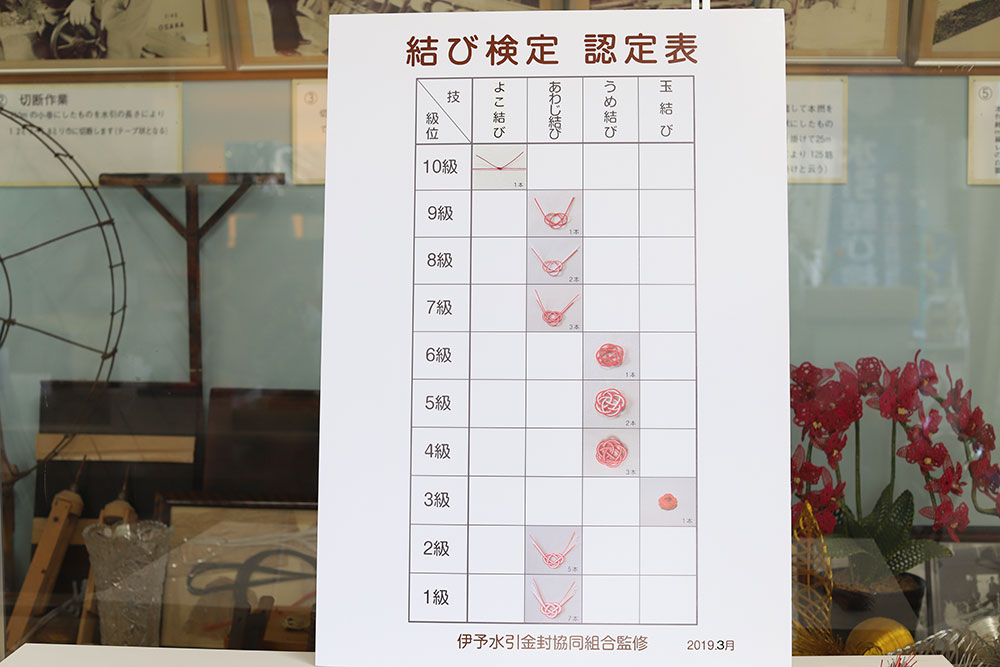 結び検定 認定表
技
級位
よこ結び
あわじ結び
うめ結び
玉結び
10級
1本
9級
1本
8級
2本
7級
3本
6級
1本
5級
2本
4級
3本
3級
1本
2級
5本
1級
7本
伊予水引金封協同組合監修 2019.3月
② 切断作業
の小巻にしたものを水引の長さにより
に切断します(テープ状となる)
③
して本撚を
にしたもの
掛けて25m
により125筋
掛けと云う)
⑤